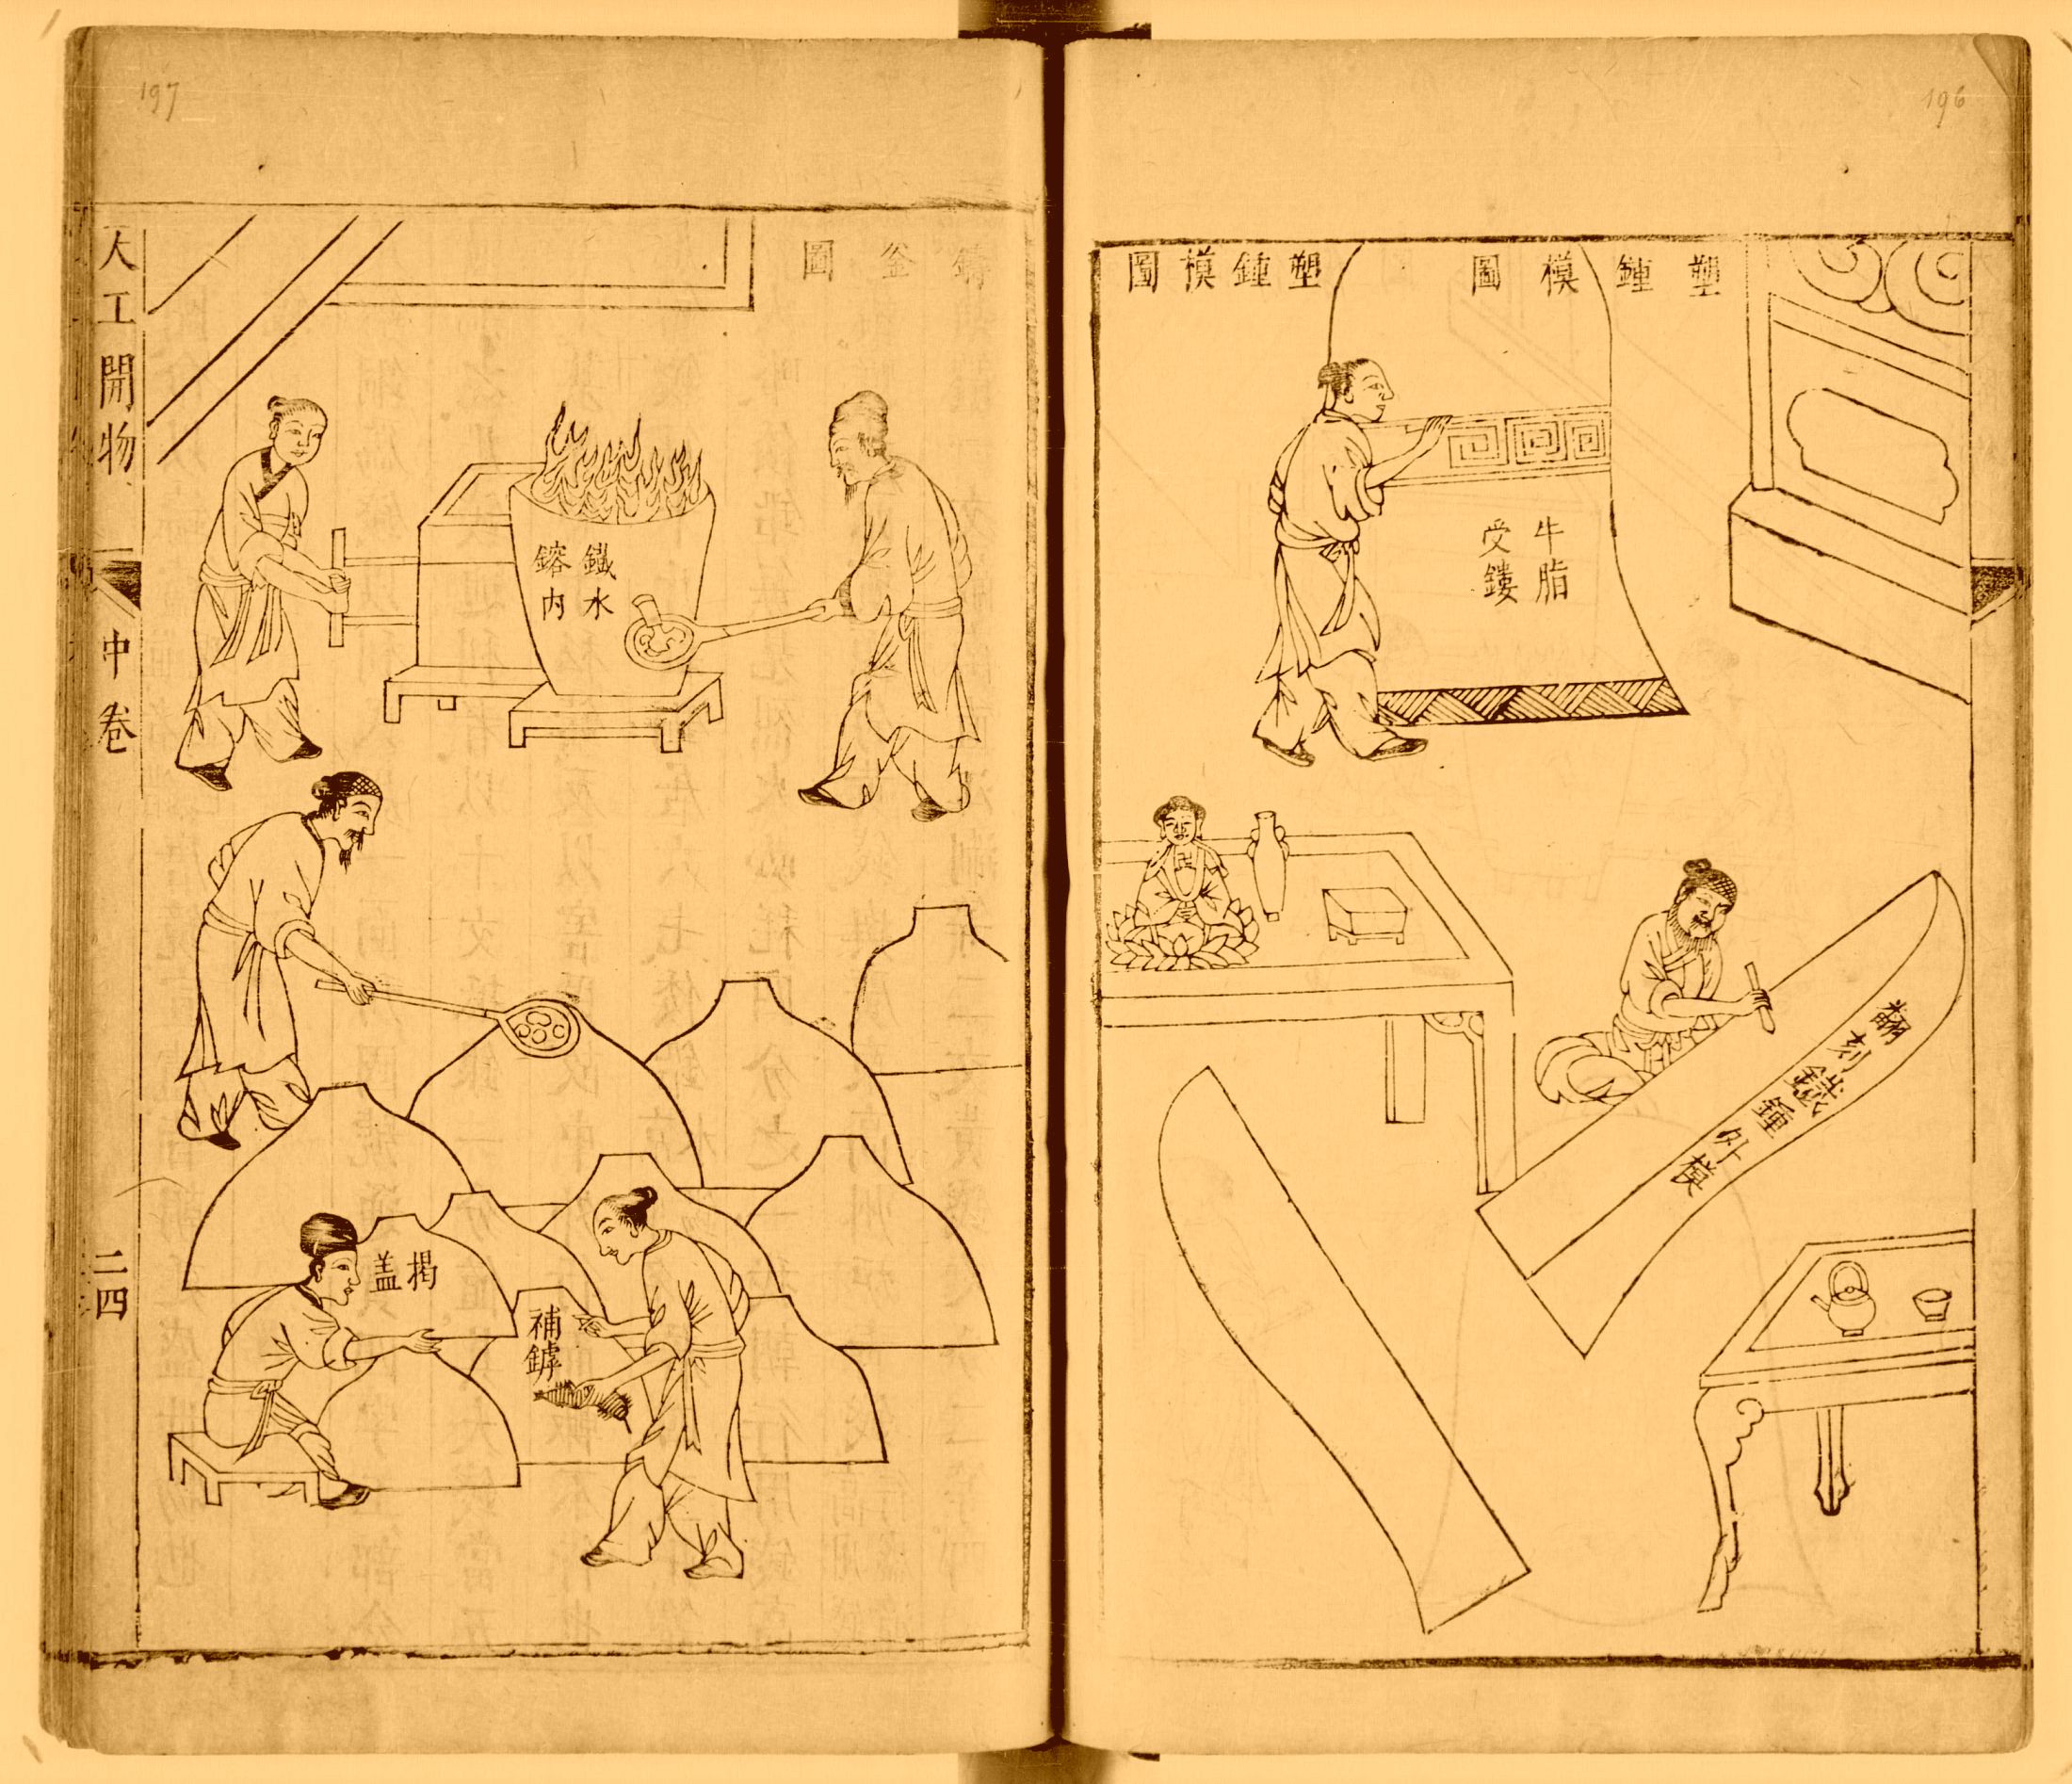 196
塑鍾模圖
牛脂
受鏤
塑鍾模圖
翻刻鐵鍾外模
197
鑄釜圖
鐵水
鎔內
揭
盖
補罅
天工開物
中卷
二四